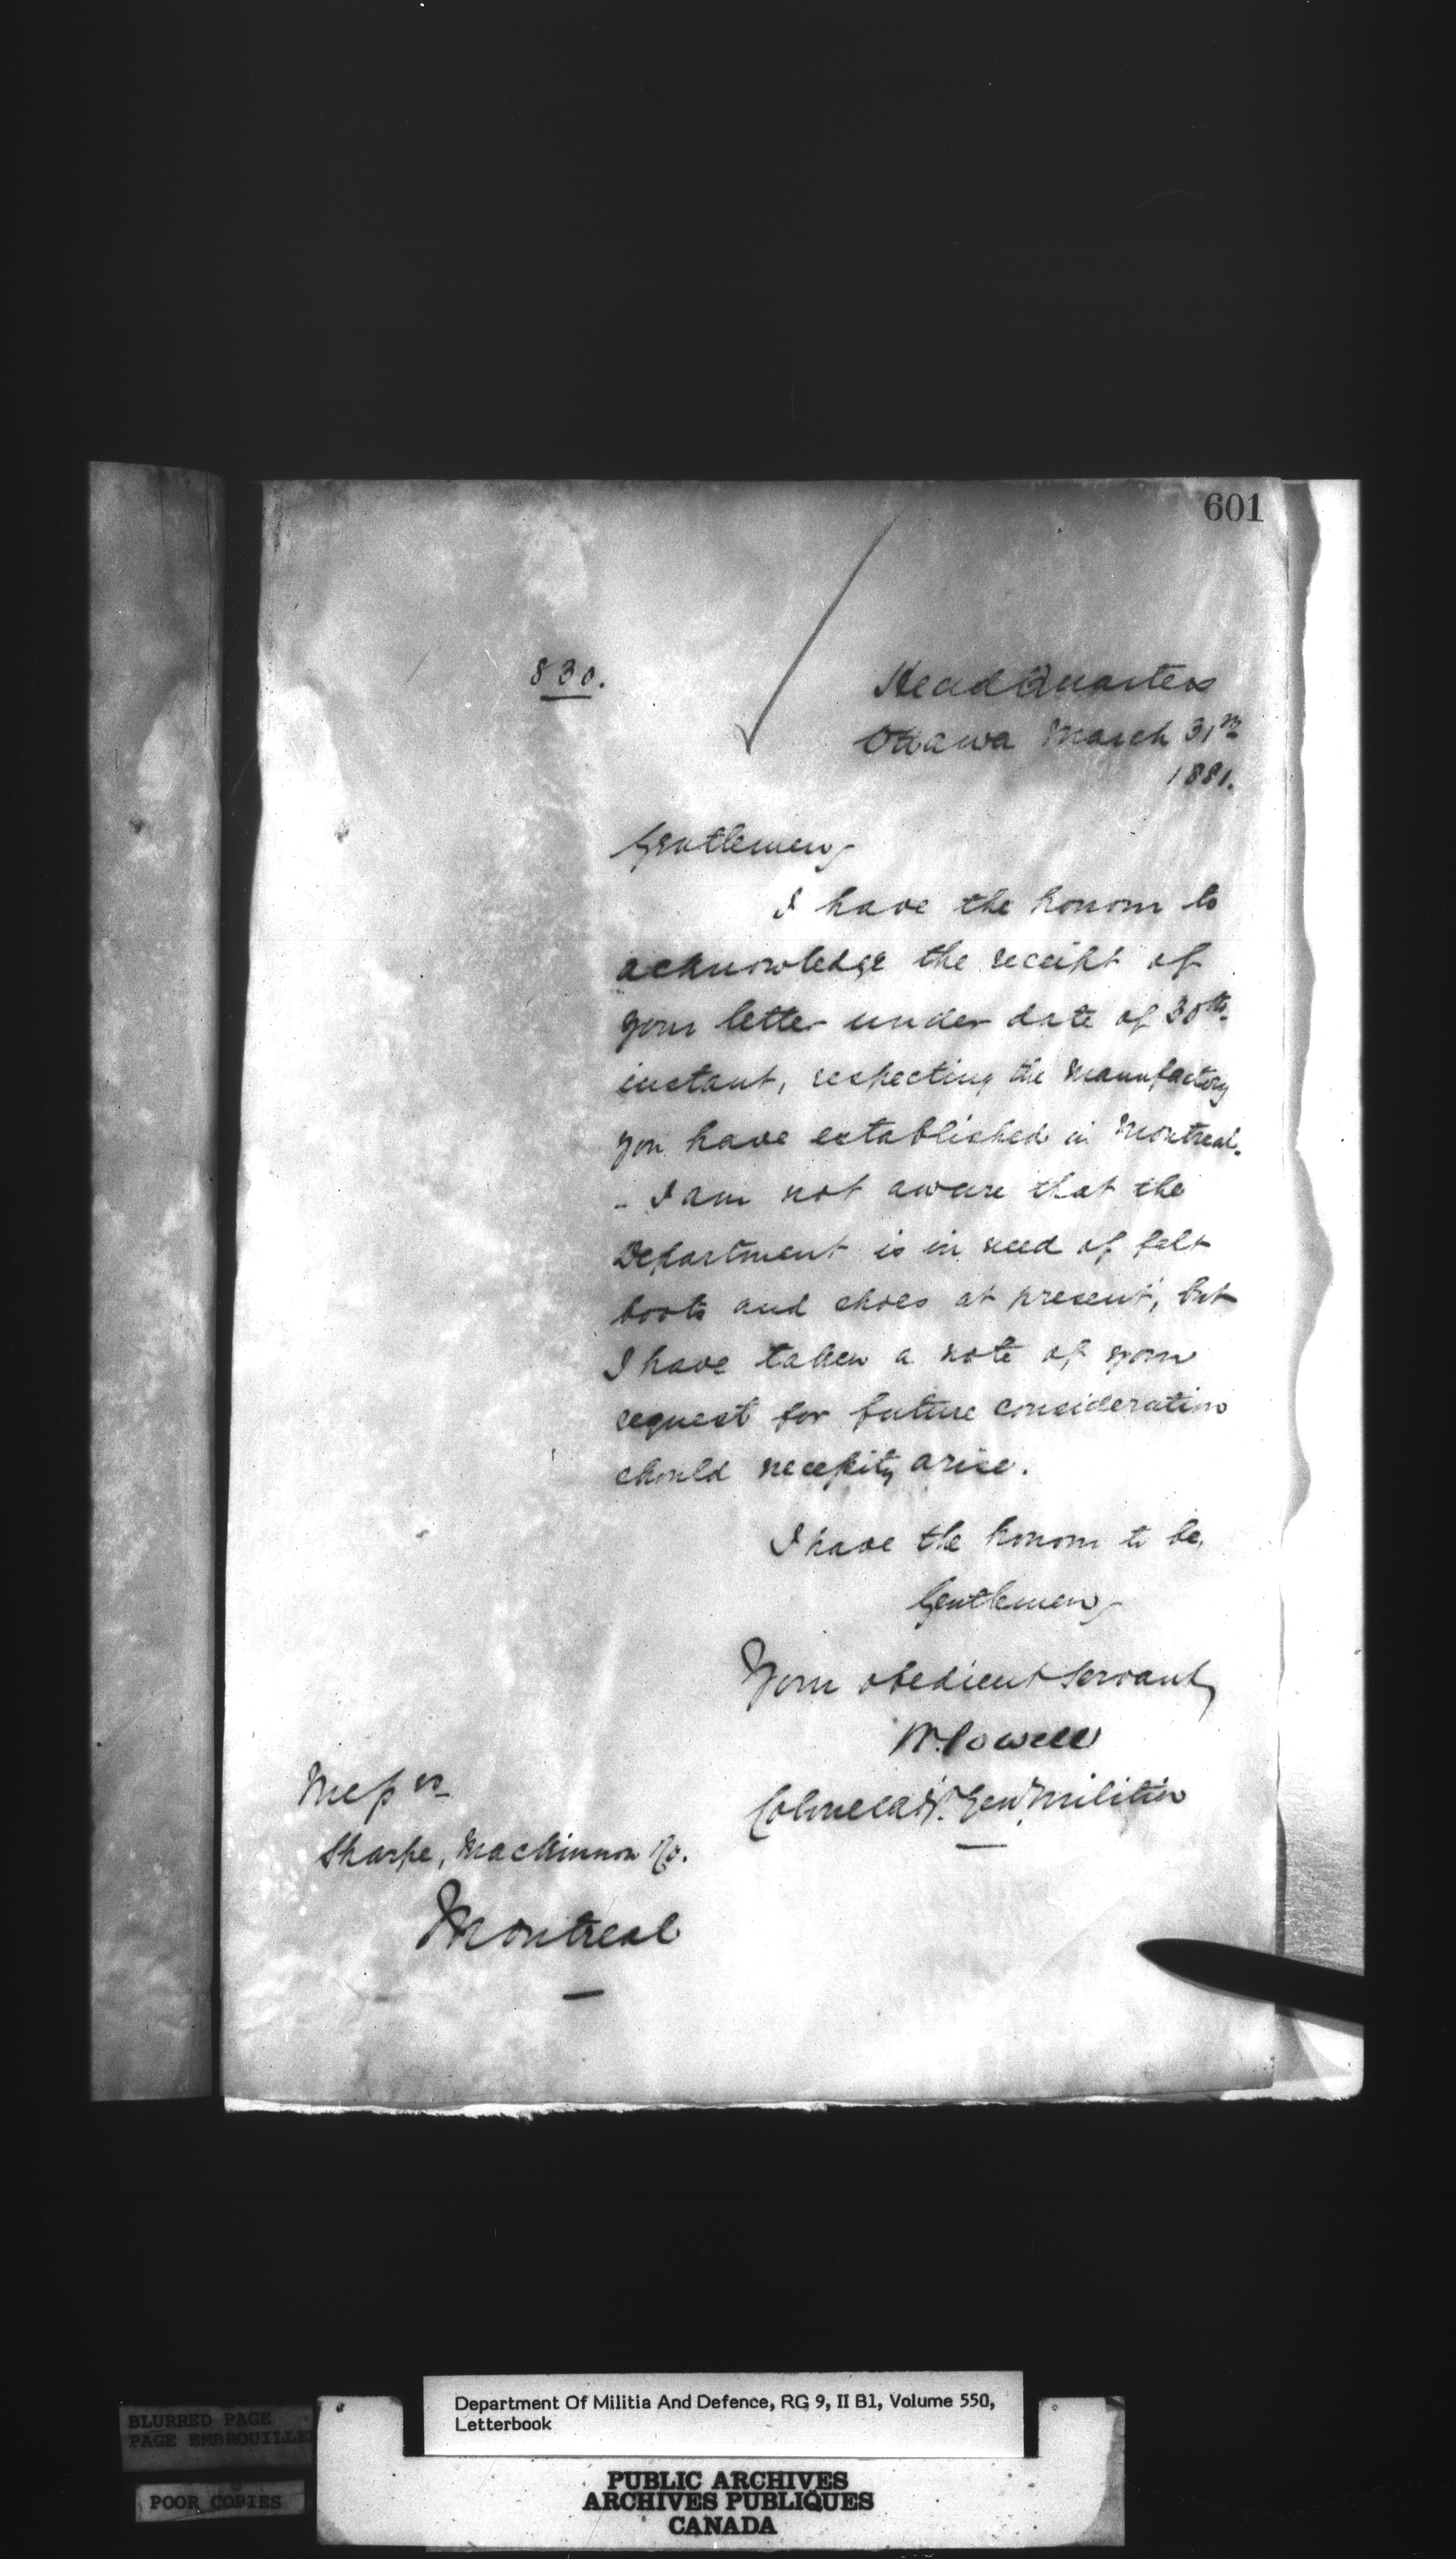 601
830.
Head Quarters
Ottawa March 31st
1881.
Gentlemen,
I have the honour to
acknowledge the receipt of
your letter under date of 30th
instant, respecting the manufactory
you have established in Montreal.
- I am not aware that the
Department is in need of felt
boots and shoes at present, but
I have taken a note of your
request for future consideration
should necessity arise.
I have the honour to be,
Gentlemen,
Your obedient Servant,
W. Powell
Colonel Adjt. Genl. Militia
Messrs
Sharpe, MacKinnon & Co.
Montreal
BLURRED PAGE
PAGE EMBROUILLEE
POOR COPIES
Department Of Militia And Defence, RG 9, II B1, Volume 550,
Letterbook
PUBLIC ARCHIVES
ARCHIVES PUBLIQUES
CANADA